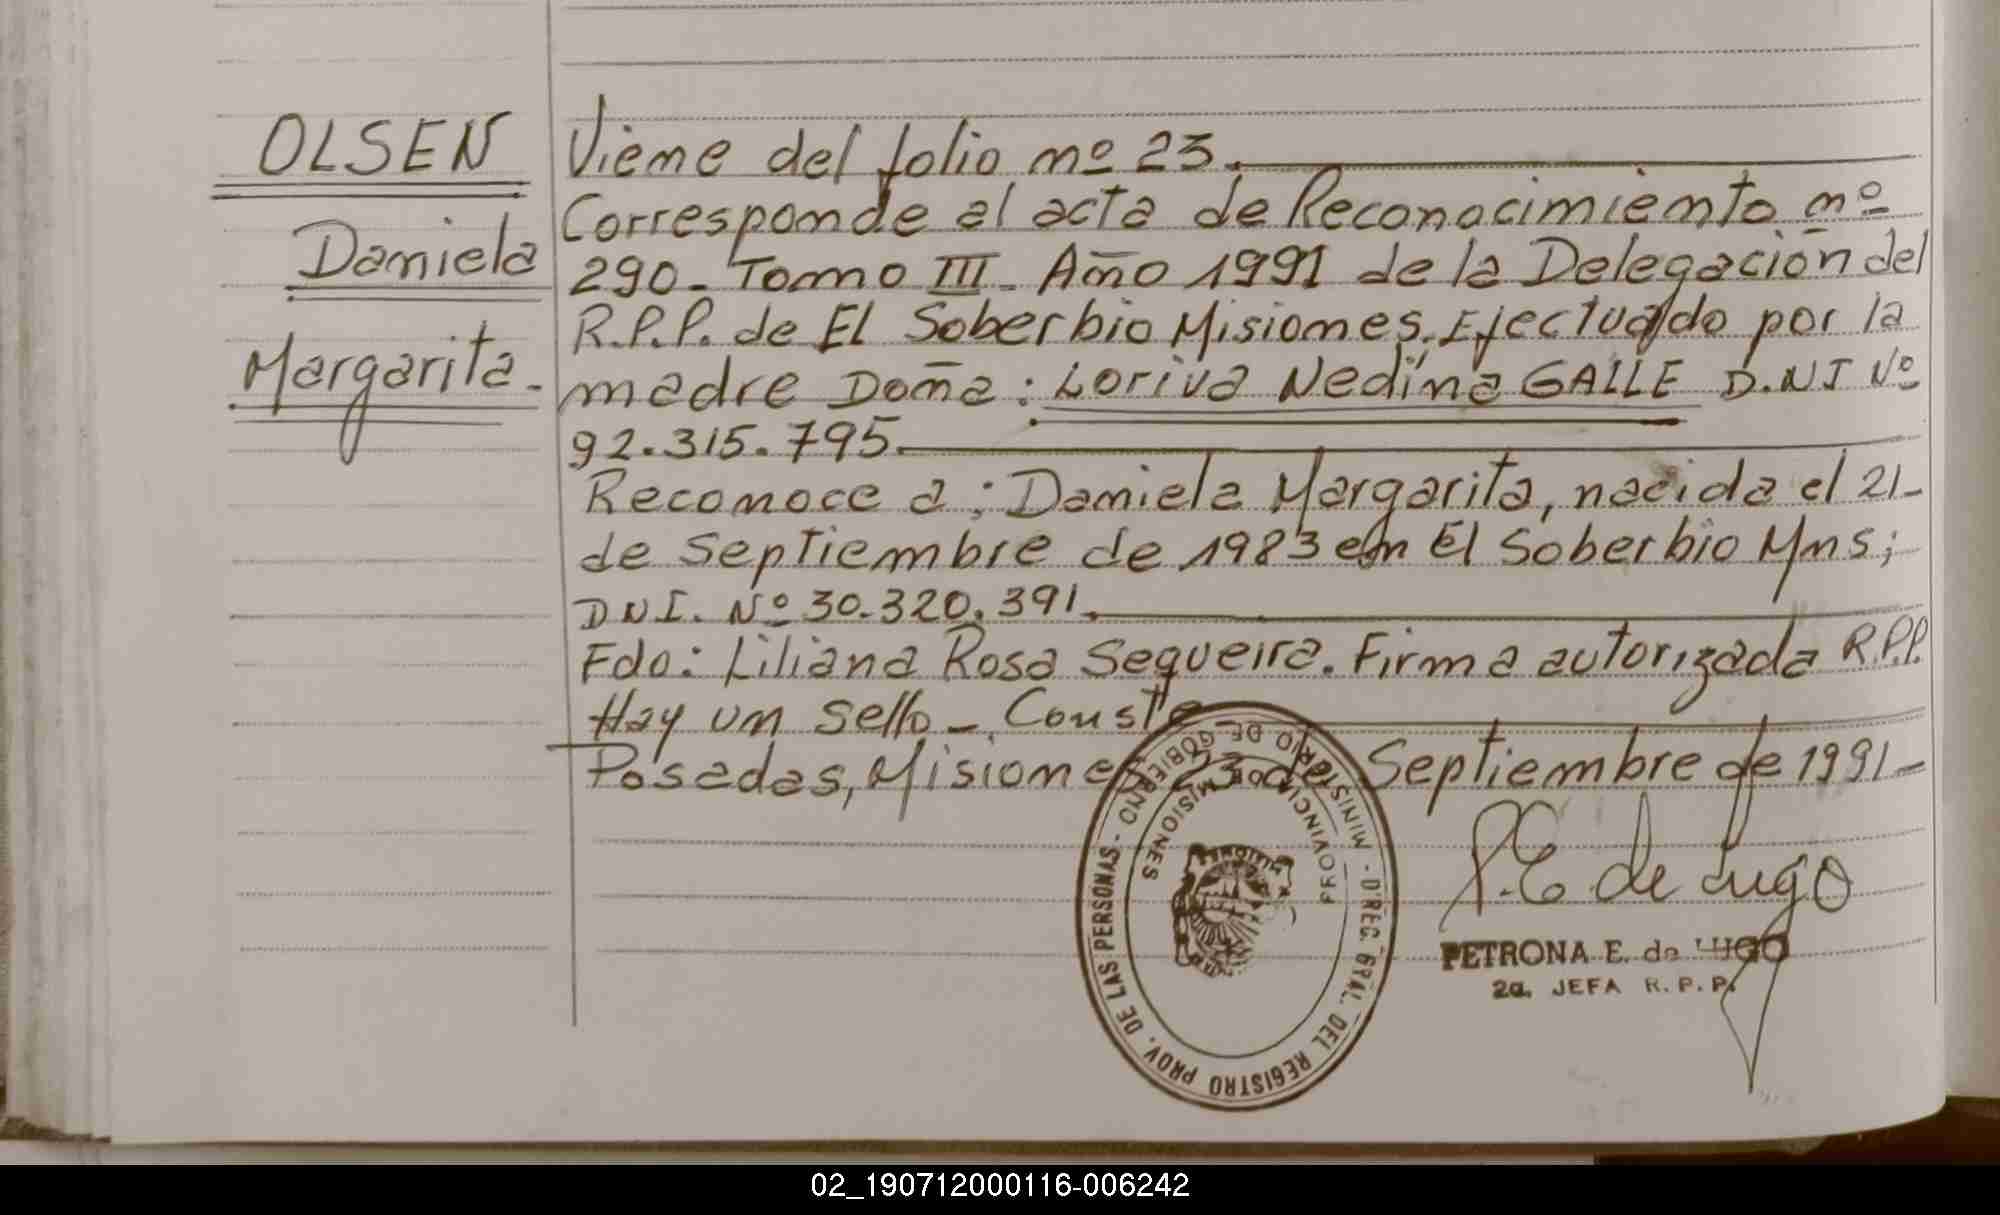 OLSEN
Daniela
Margarita.
Viene del folio nº 23.
Corresponde al acta de Reconocimiento nº
290 - Tomo III - Año 1991 de la Delegación del
R.P.P. de El Soberbio Misiones. Efectuado por la
madre Doña: Loriva Nedina GALLE D.N.I Nº
92.315.795.
Reconoce a: Daniela Margarita, nacida el 21-
de Septiembre de 1983 en El Soberbio Mns;
DNI. Nº 30.320.391.
Fdo: Liliana Rosa Sequeira. Firma autorizada R.P.P.
Hay un sello -. Conste
Posadas, Misiones 23 de Septiembre de 1991-
MINISTERIO DE GOBIERNO - DIREC. GRAL. DEL REGISTRO PROV. DE LAS PERSONAS -
PROVINCIA DE MISIONES
P.E. de Lugo
PETRONA E. de LUGO
2a. JEFA R.P.P.
02_190712000116-006242